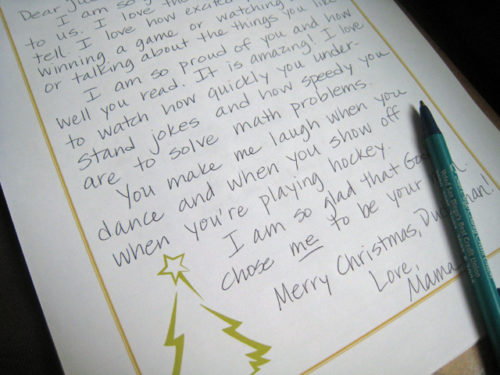 Dear
I am so
to us. I love the
tell. I love how excited
winning a game or watching
or talking about the things you like
I am so proud of you and how
well you read. It is amazing! I love
to watch how quickly you under-
stand jokes and how speedy you
are to solve math problems.
You make me laugh when you
dance and when you show off
when you're playing hockey.
I am so glad that God
chose me to be your
Merry Christmas,
Love,
Mama